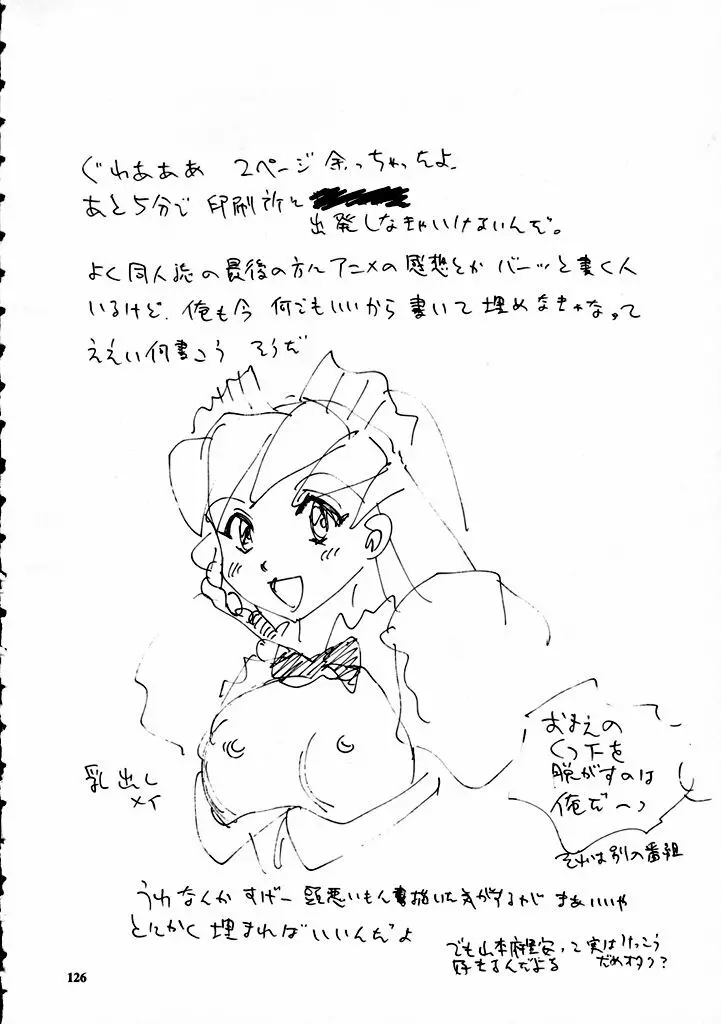 ぐわあああ 2ページ 余っちゃったよ
あと5分で 印刷所に
出発しなきゃいけないんだ。
よく同人誌の最後の方にアニメの感想とか バーッと書く人
いるけど、俺も今 何でもいいから 書いて 埋めなきゃなって
ええい何書こう そうだ
乳出し
メイ
おまえの
くつ下を
脱がすのは
俺だ〜っ
それは別の番組
うわなんか すげー 頭悪いもん書描いた気がするが まあいいや
とにかく 埋まれば いいんだよ
でも山本麻里安って 実はけっこう
好きなんだよな だめオタク?
126